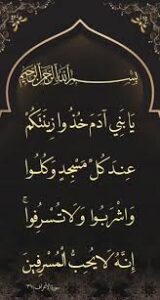 بِسْمِ اللَّهِ الرَّحْمَٰنِ الرَّحِيمِ
يَا بَنِي آدَمَ خُذُوا زِينَتَكُمْ
عِنْدَ كُلِّ مَسْجِدٍ وَكُلُوا
وَاشْرَبُوا وَلَا تُسْرِفُوا ۚ
إِنَّهُ لَا يُحِبُّ الْمُسْرِفِينَ